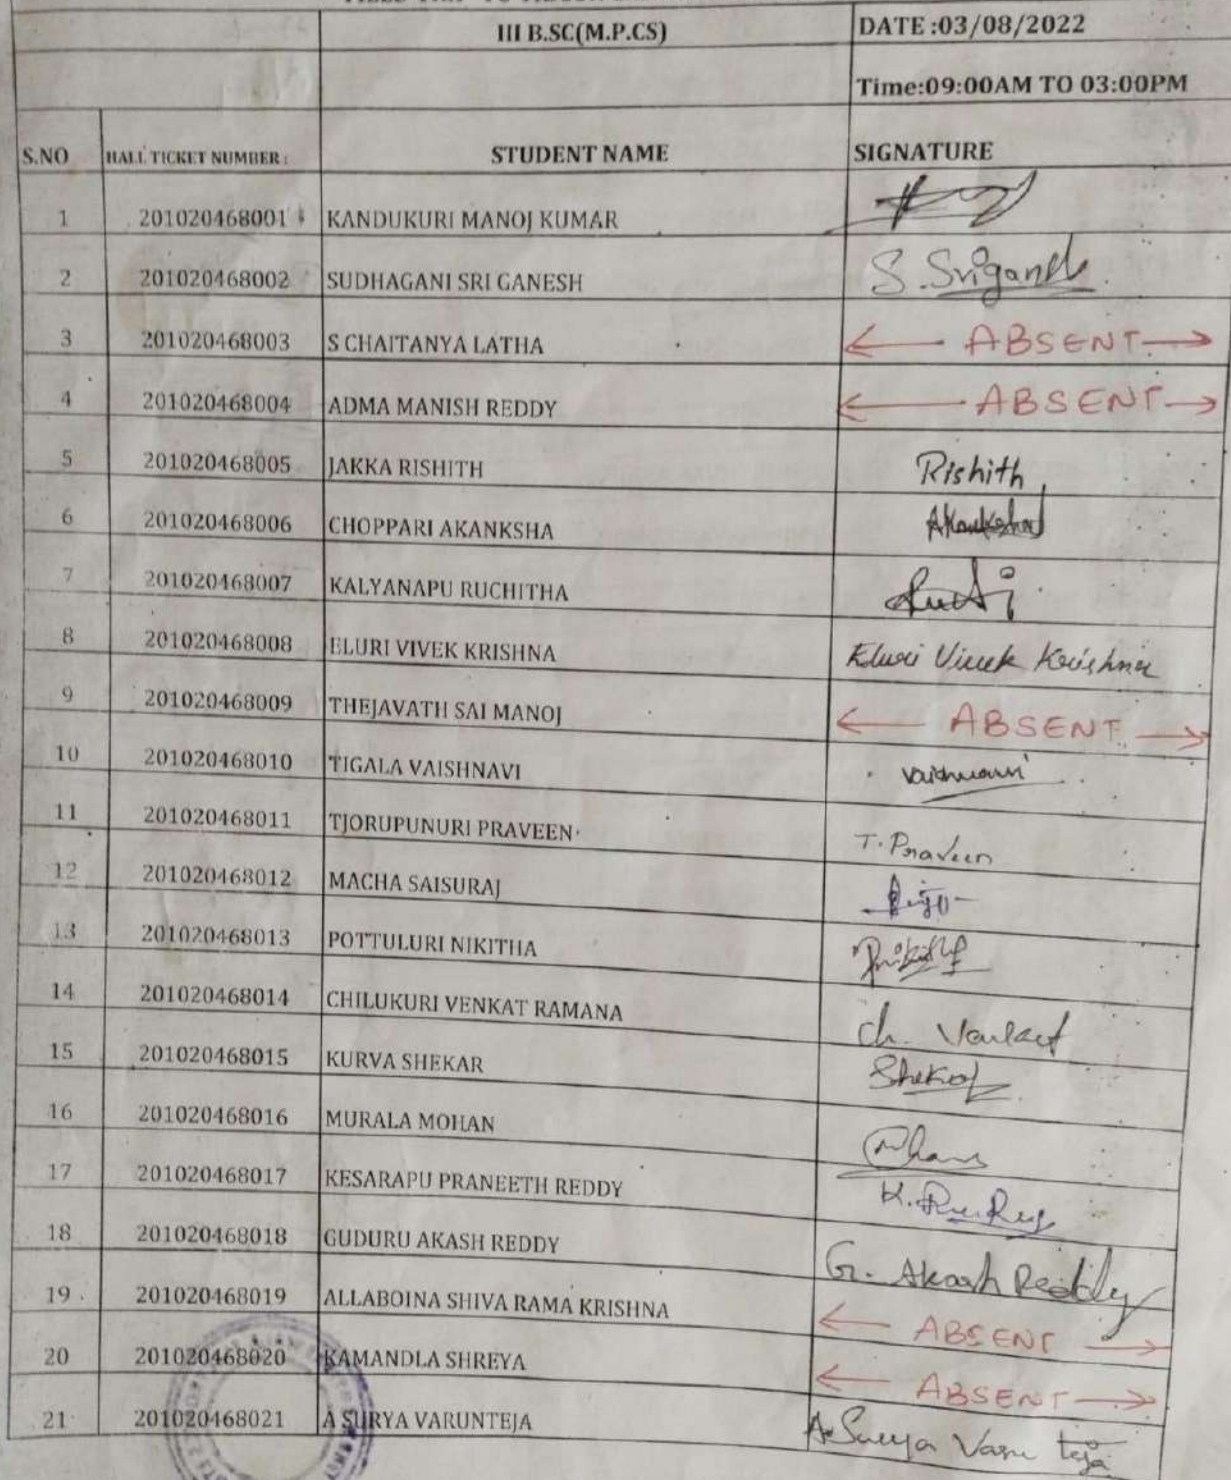 III B.SC(M.P.CS) DATE :03/08/2022
Time:09:00AM TO 03:00PM
S.NO HALL TICKET NUMBER : STUDENT NAME SIGNATURE
1 201020468001 KANDUKURI MANOJ KUMAR
2 201020468002 SUDHAGANI SRI GANESH S.Sriganesh
3 201020468003 S CHAITANYA LATHA ABSENT
4 201020468004 ADMA MANISH REDDY ABSENT
5 201020468005 JAKKA RISHITH Rishith
6 201020468006 CHOPPARI AKANKSHA Akanksha
7 201020468007 KALYANAPU RUCHITHA
8 201020468008 ELURI VIVEK KRISHNA Eluri Vivek Krishna
9 201020468009 THEJAVATH SAI MANOJ ABSENT
10 201020468010 TIGALA VAISHNAVI Vaishnavi
11 201020468011 TJORUPUNURI PRAVEEN T. Praveen
12 201020468012 MACHA SAISURAJ
13 201020468013 POTTULURI NIKITHA
14 201020468014 CHILUKURI VENKAT RAMANA Ch. Venkat
15 201020468015 KURVA SHEKAR Shekar
16 201020468016 MURALA MOHAN
17 201020468017 KESARAPU PRANEETH REDDY
18 201020468018 GUDURU AKASH REDDY G. Akash Reddy
19 201020468019 ALLABOINA SHIVA RAMA KRISHNA ABSENT
20 201020468020 KAMANDLA SHREYA ABSENT
21 201020468021 A SURYA VARUNTEJA A. Surya Varu teja